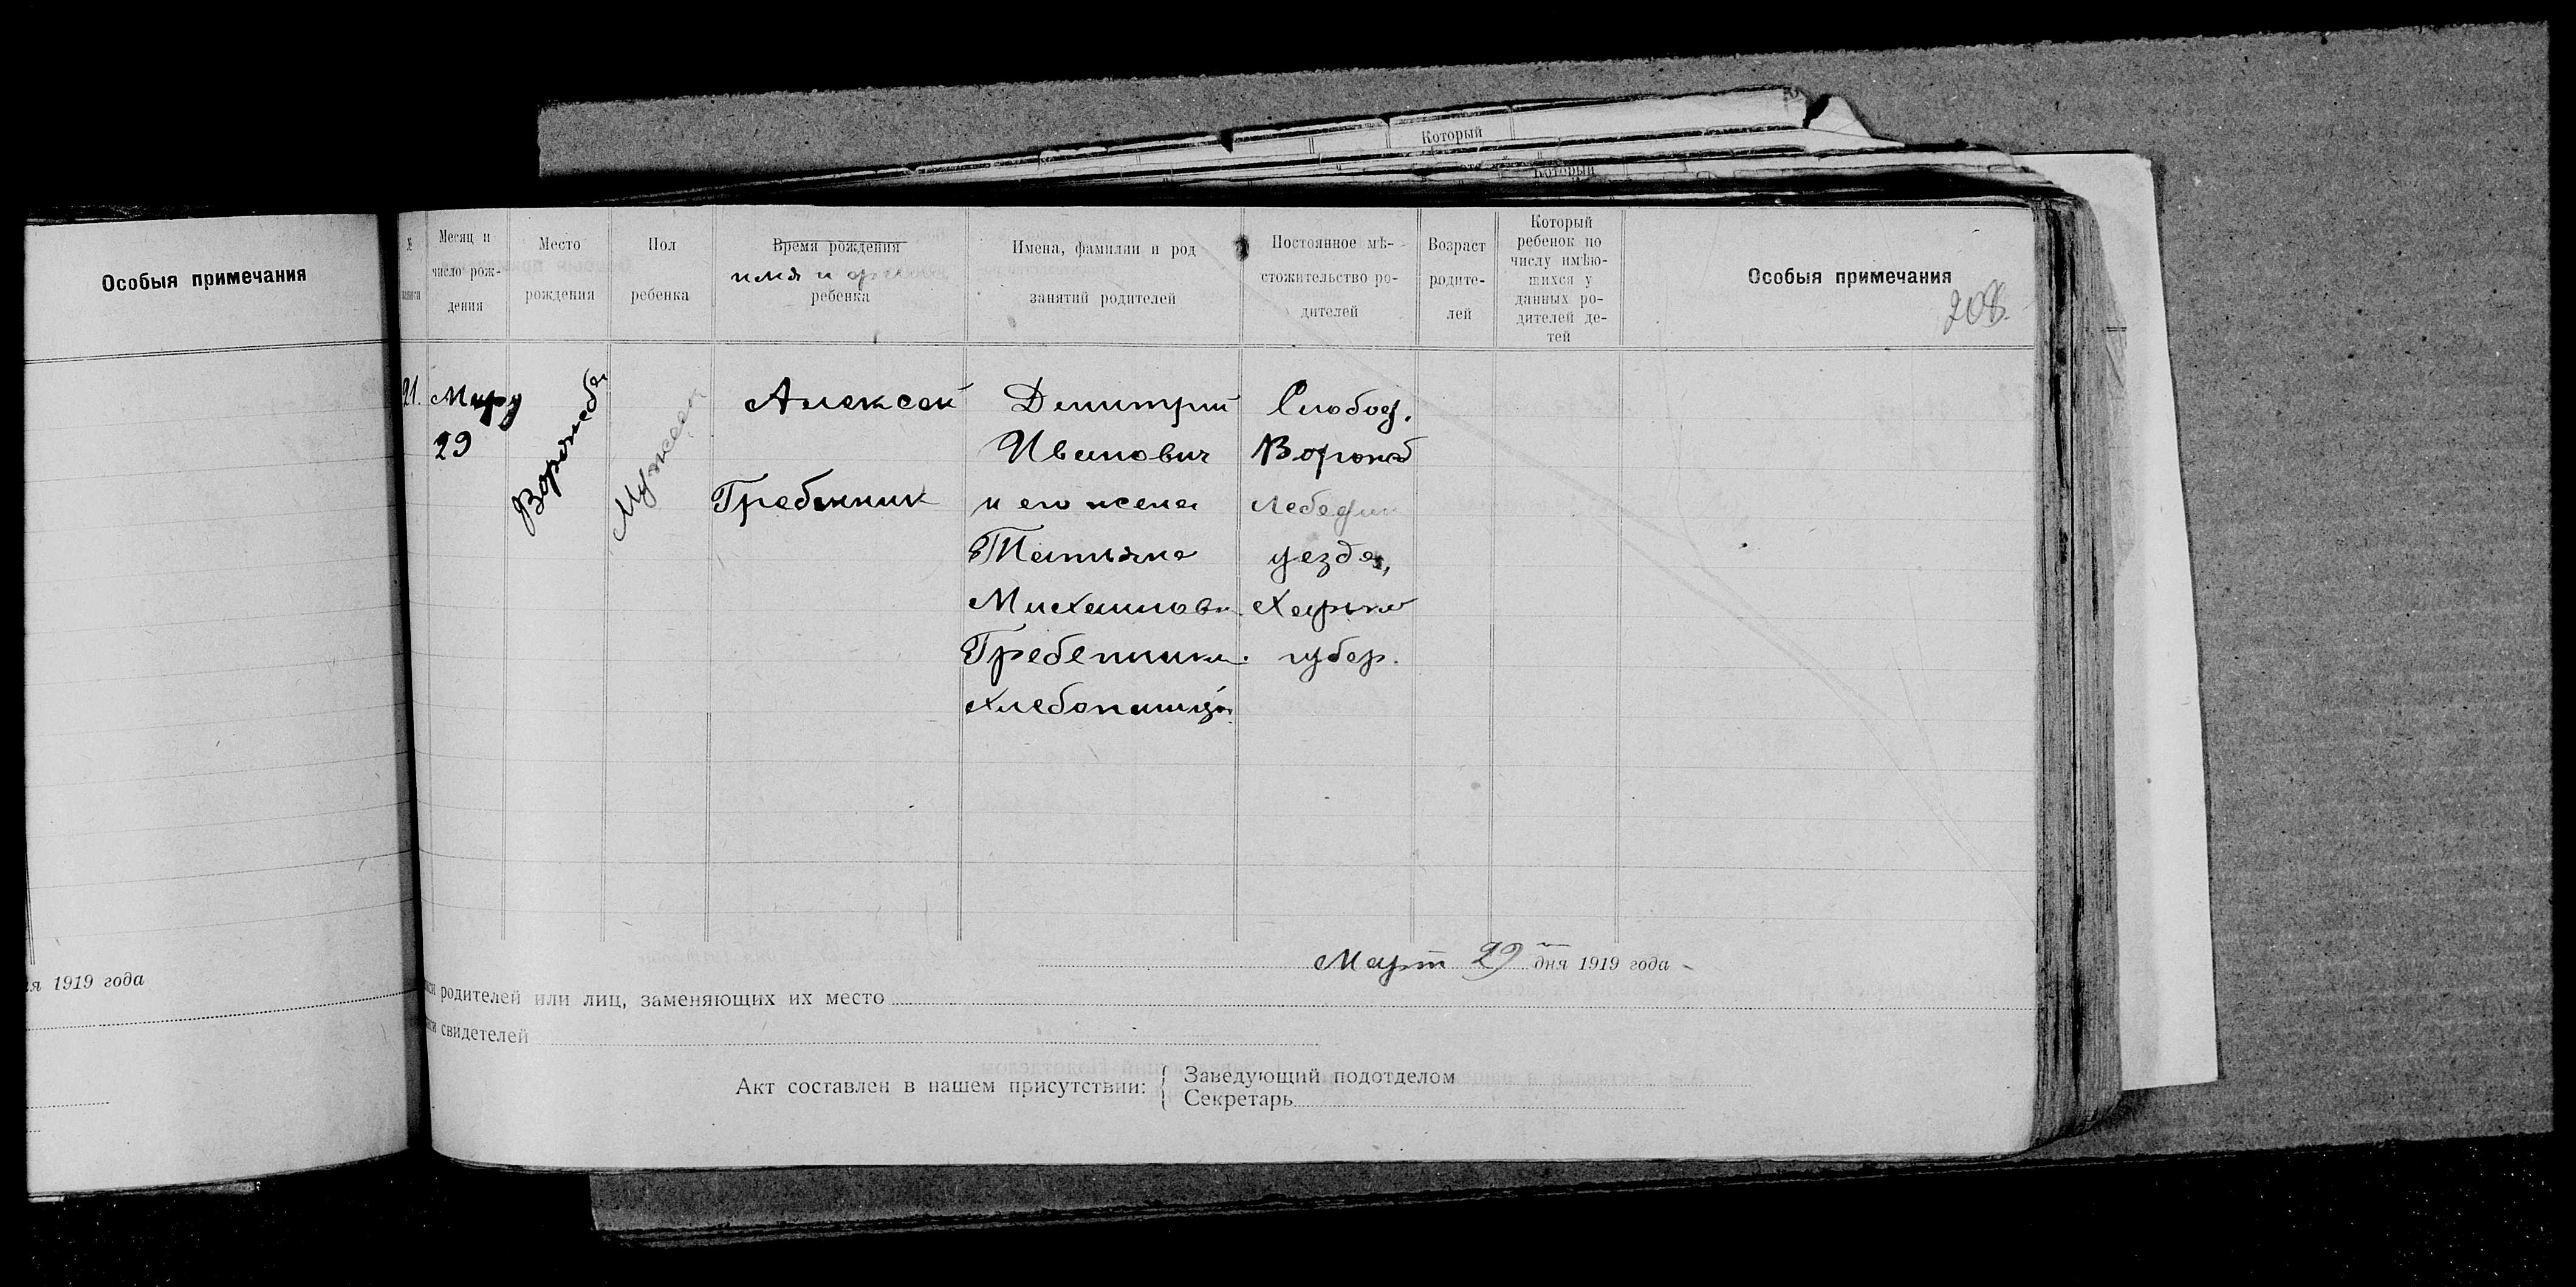 Который
Который
Особыя примечания
я 1919 года
№
Месяц и
число рож-
дения
Место
рождения
Пол
ребенка
Время рождения
имя и
ребенка
Имена, фамилии и род
занятий родителей
Постоянное мѣ-
стожительство ро-
дителей
Возраст
родите-
лей
Который
ребенок по
числу имѣю-
щихся у
данных ро-
дителей де-
тей
Особыя примечания
208.
21.
29
Мужеск
Алексей
Гребенник
Димитрий
Иванович
и его жена
Татьяна
Михаиловн.
Гребенники.
Слобод.
уезда,
Харько
губер.
Март 29 дня 1919 года
родителей или лиц, заменяющих их место
свидетелей
Акт составлен в нашем присутствии:
Заведующий подотделом
Секретарь